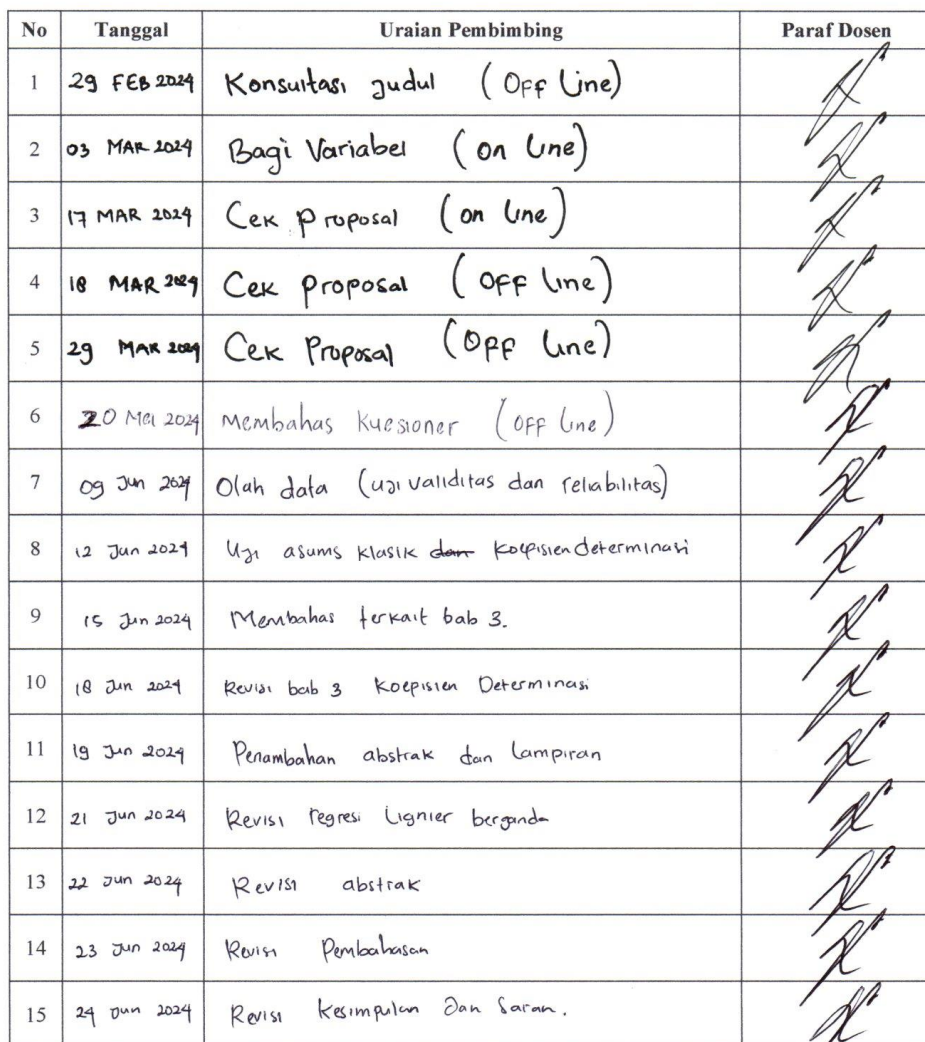 No Tanggal Uraian Pembimbing Paraf Dosen
1 29 FEB 2024 Konsultasi Judul (OFF Line)
2 03 MAR 2024 Bagi Variabel (on Line)
3 17 MAR 2024 Cek proposal (on Line)
4 18 MAR 2024 Cek proposal (OFF Line)
5 29 MAR 2024 Cek Proposal (OFF Line)
6 20 Mei 2024 Membahas Kuesioner (OFF Line)
7 09 Jun 2024 Olah data (uji validitas dan reliabilitas)
8 12 Jun 2024 Uji asums klasik dan koepisien determinasi
9 15 Jun 2024 Membahas terkait bab 3.
10 18 Jun 2024 Revisi bab 3 Koepisien Determinasi
11 19 Jun 2024 Penambahan abstrak dan Lampiran
12 21 Jun 2024 Revisi regresi Lignier berganda
13 22 Jun 2024 Revisi abstrak
14 23 Jun 2024 Revisi Pembahasan
15 24 Jun 2024 Revisi Kesimpulan Dan Saran.